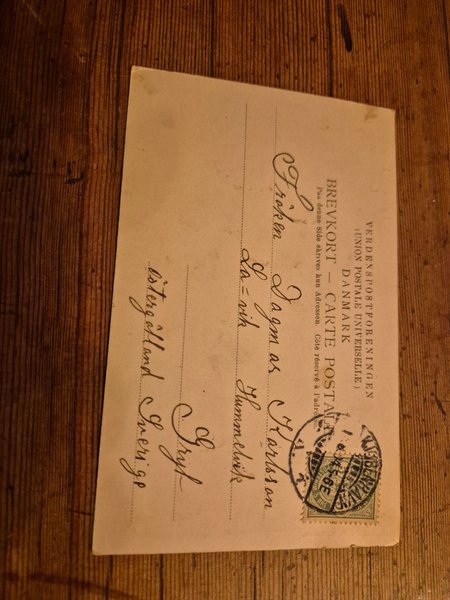 VERDENSPOSTFORENINGEN
(UNION POSTALE UNIVERSELLE)
DANMARK
BREVKORT — CARTE POSTALE
Paa denne Side skrives kun Adressen. Côté réservé à l'adresse
KJØBENHAVN
Fröken Dagmar Karlsson
La=vik Hummelvik
Gryt
Östergötland Sverige